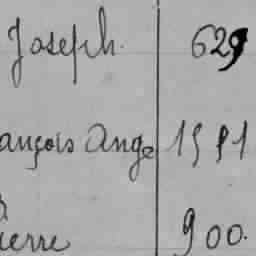 Joseph. 629
ançois Ange 1591
ierre 900.